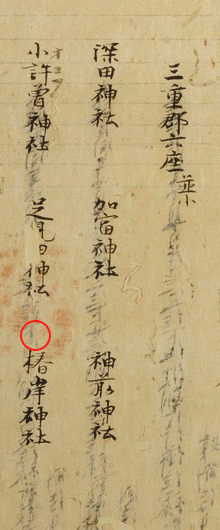 三重郡六座 並小
深田神社 加富神社 神前神社
小許曽神社 足見田神社 椿岸神社